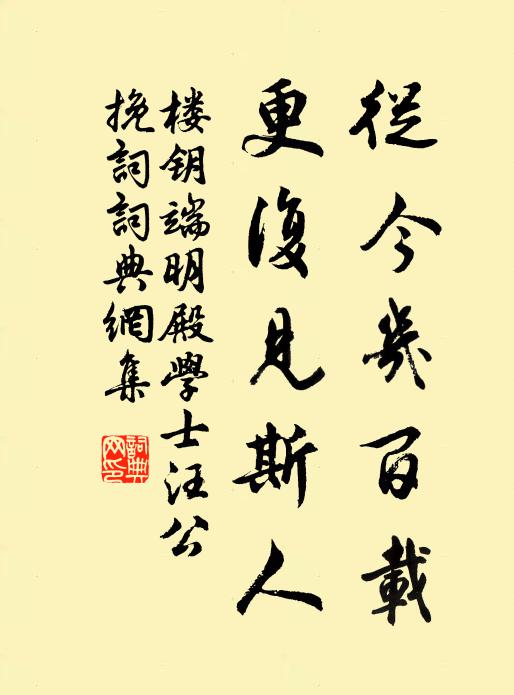 從今幾百載
更復見斯人
楼钥端明殿學士汪公
挽詞詞典網集
詞典网印